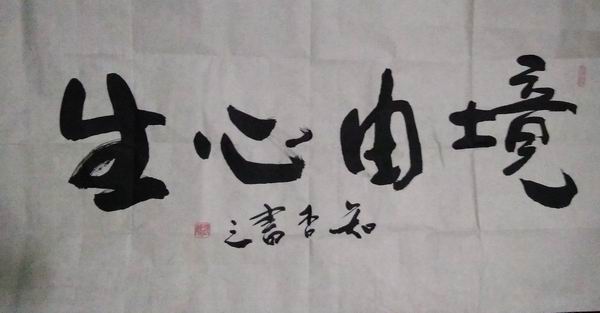 境由心生
知否書之